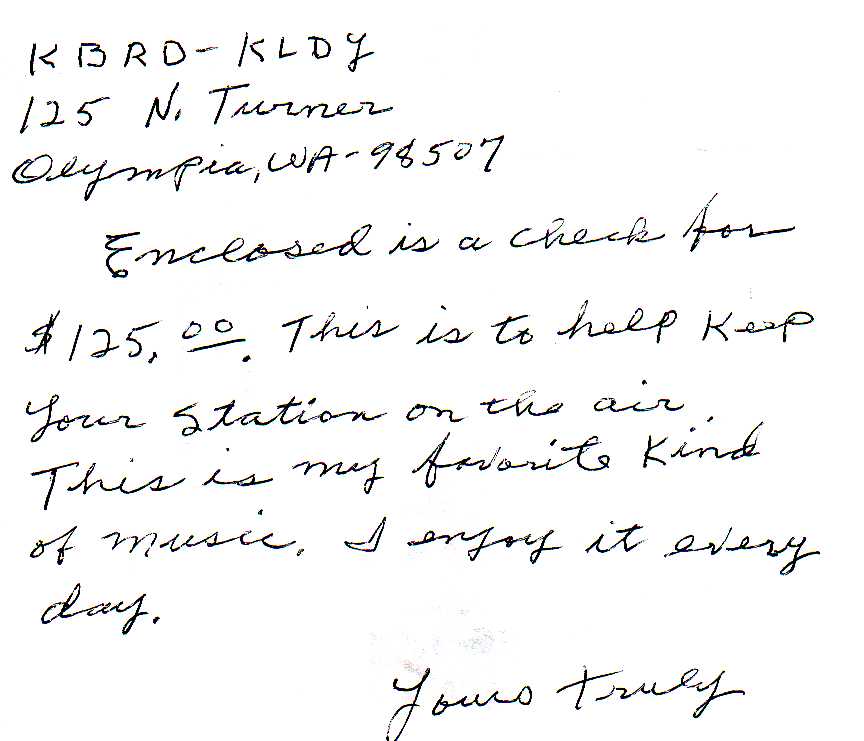 KBRD-KLDY
125 N. Turner
Olympia, WA-98507
Enclosed is a check for
$125.00. This is to help Keep
your station on the air.
This is my favorite Kind
of music. I enjoy it every
day.
Yours truly